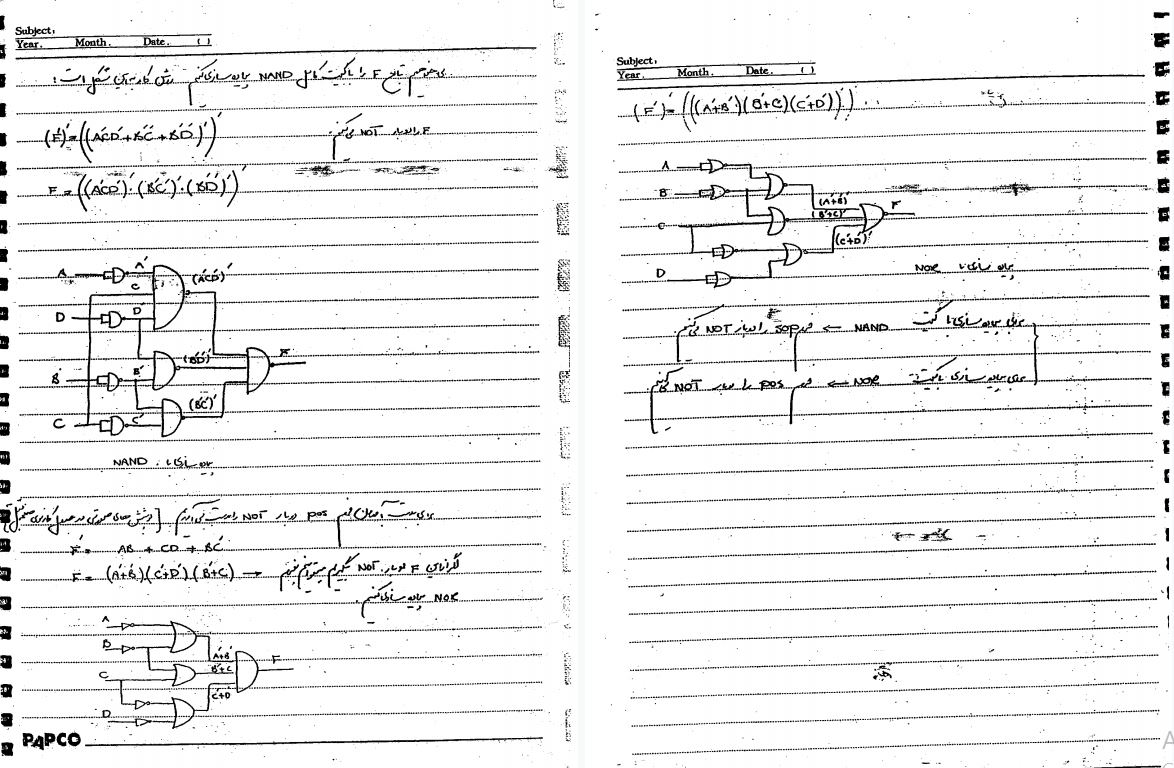 Subject:
Year. Month. Date. ( )
می‌خواهیم تابع F را با گیت کامل NAND پیاده‌سازی کنیم روش کار به این شکل است:
(F')' = ((A'CD' + B'C' + B'D')')'
F را دوبار NOT می‌کنیم.
F = ((A'CD')' · (B'C')' · (B'D')')'
A A' C (A'CD')'
D D'
B B' (B'D')' F
C C' (B'C')'
NAND پیاده سازی با
برای بدست آوردن فرم POS دوبار NOT را بدست می‌آوریم
F' = AB + CD + BC'
F = (A'+B')(C'+D')(B'+C) →
اگر تابع F دوبار NOT بگیریم میتوانیم
NOR پیاده سازی کنیم.
A
B A'+B'
C B'+C F
D C'+D'
PAPCO
Subject:
Year. Month. Date. ( )
(F')' = (((A'+B')(B'+C)(C'+D'))')'
A
B (A'+B')' F
C (B'+C)'
(C'+D')'
D
پیاده سازی با NOR
برای پیاده سازی با گیت NAND ← فرم SOP را دوبار NOT می‌کنیم
برای پیاده سازی با گیت NOR ← فرم POS را دوبار NOT می‌کنیم